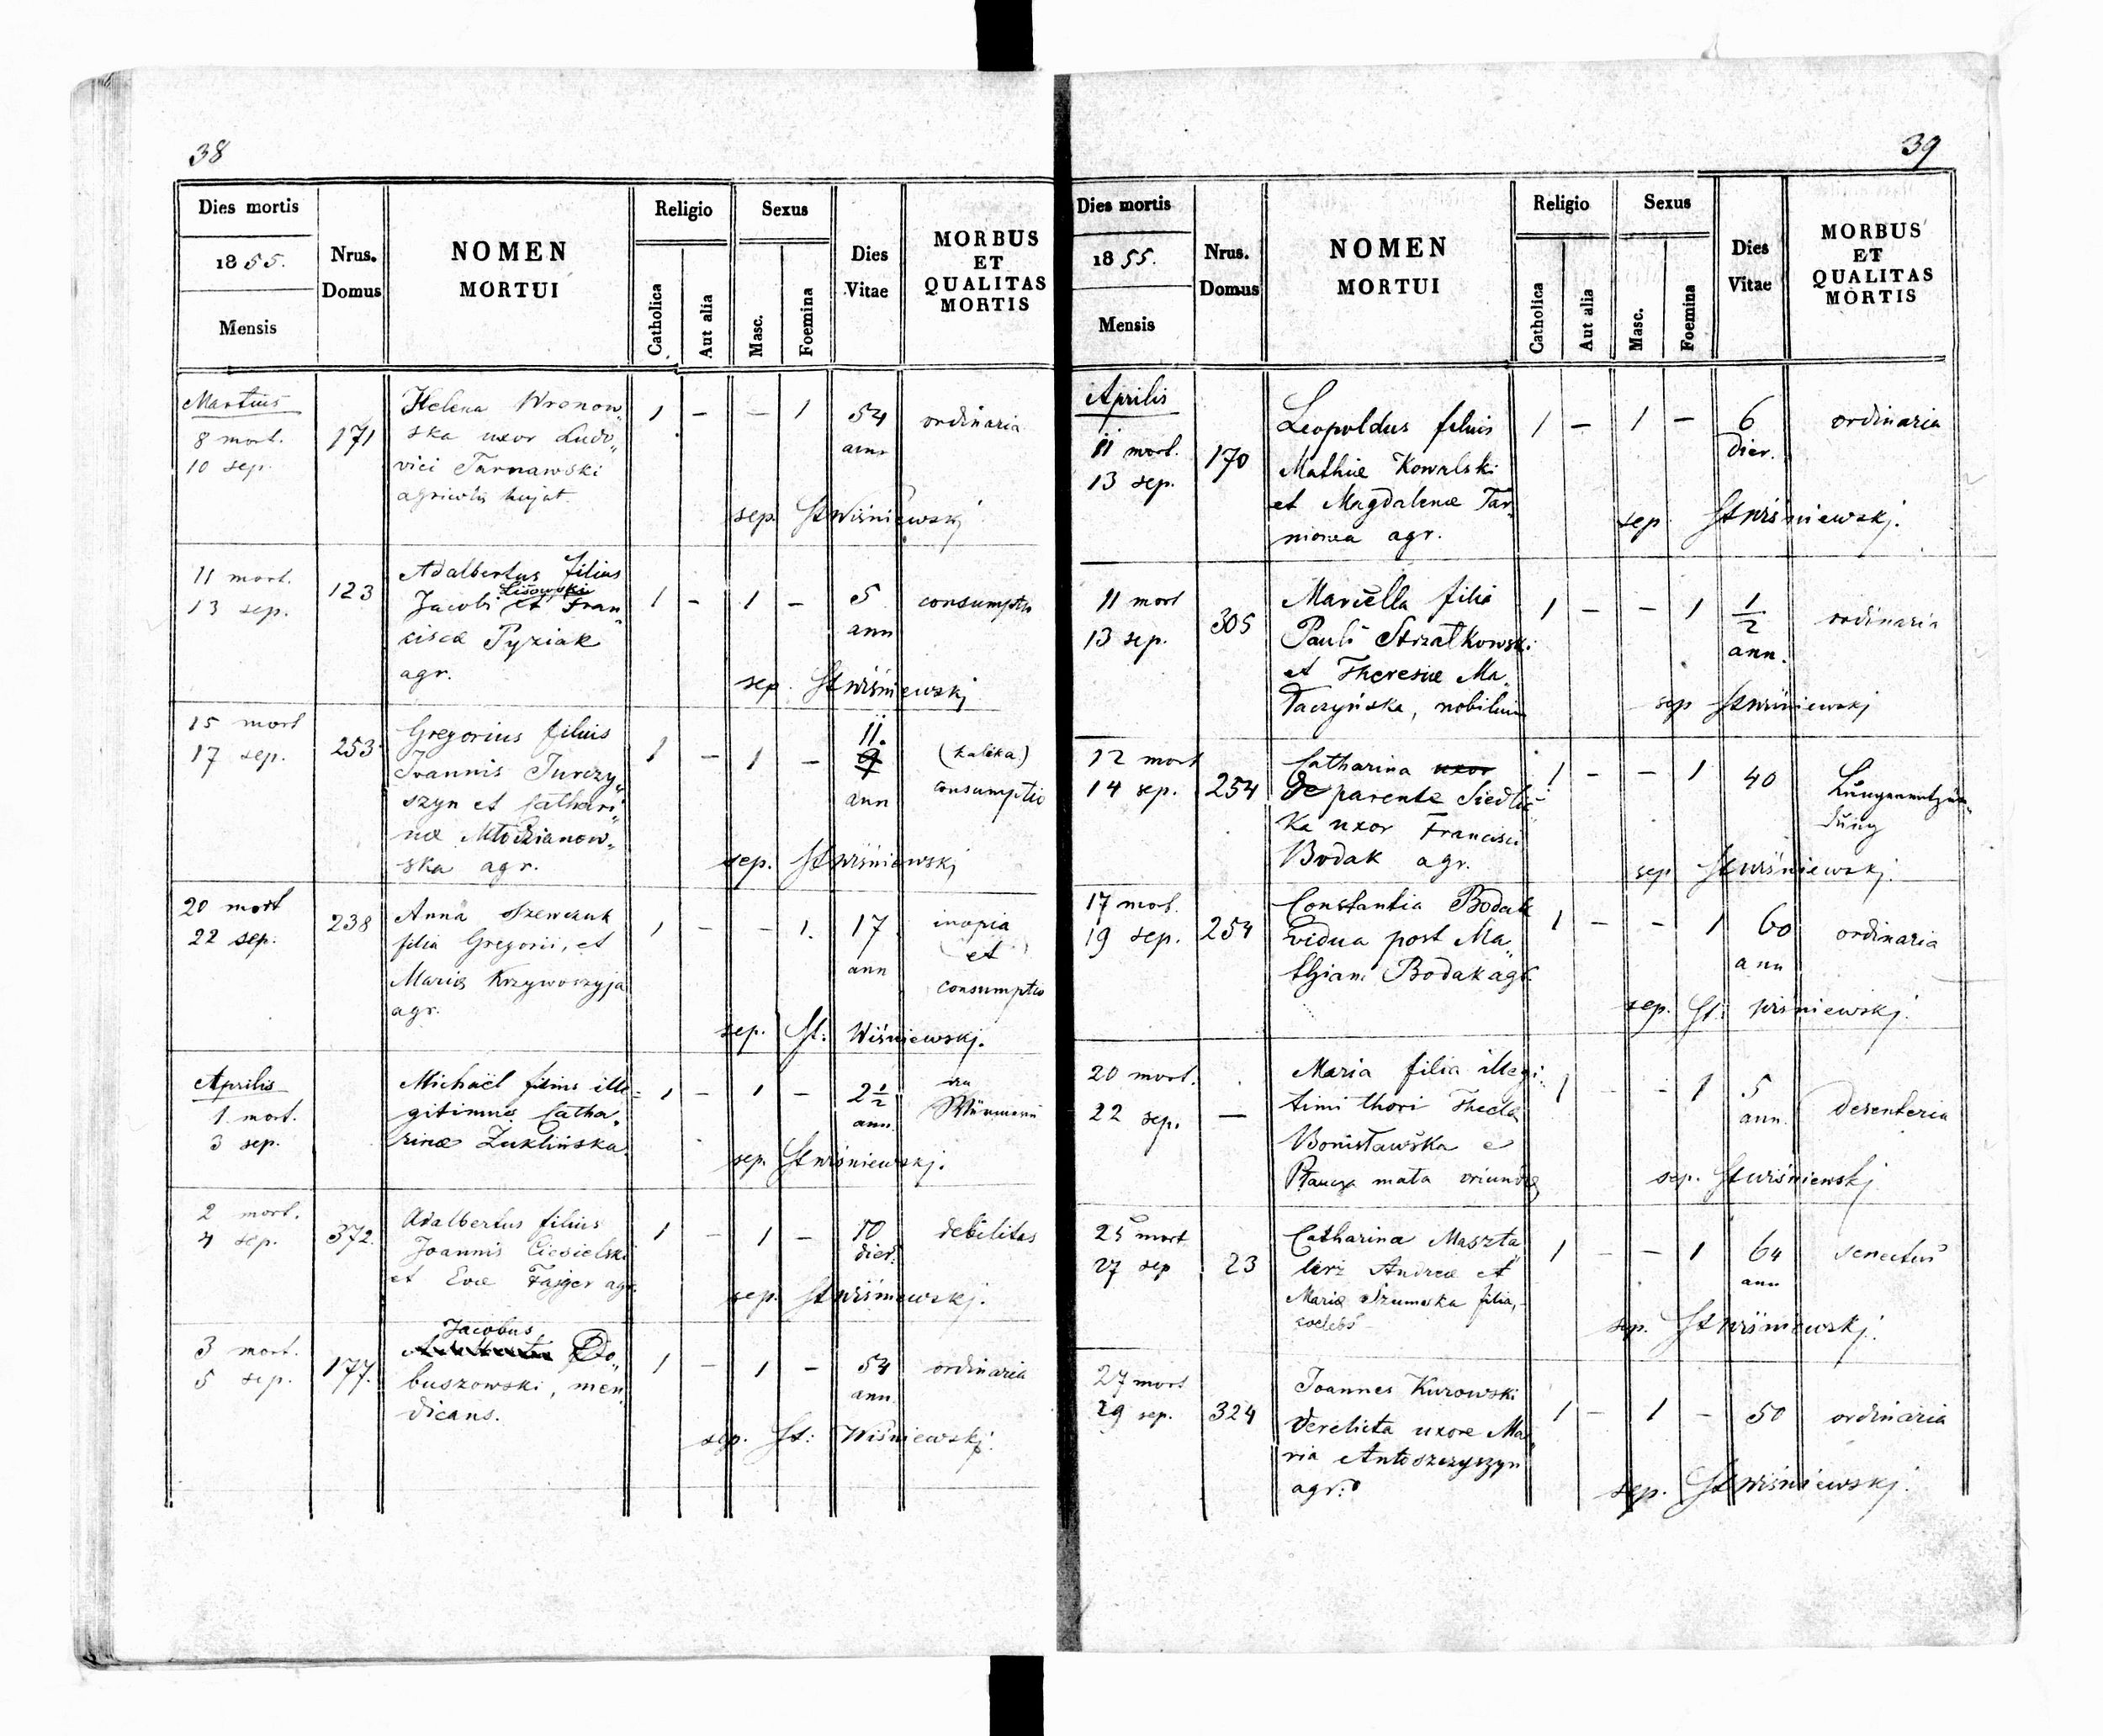 38
Dies mortis
1855.
Mensis
Nrus.
Domus
NOMEN
MORTUI
Religio
Catholica
Aut alia
Sexus
Masc.
Foemina
Dies
Vitae
MORBUS
ET
QUALITAS
MORTIS
Martius
8 mort.
10 sep.
171
Helena Wronow„
ska uxor Ludo„
vici Tarnawski
agricolæ hujat.
1 - - 1
54
ann
ordinaria
sep. St Wiśniewskj
11 mort.
13 sep.
123
Adalbertus filius
Lisowski
Jacobi et Fran„
ciscæ Pyziak
agr.
1 - 1 -
5
ann
consumptio
sep. St Wiśniewskj
15 mort
17 sep.
253
Gregorius filius
Joannis Jurczy„
szyn et Cathari„
næ Młodzianow„
ska agr.
1 - 1 -
11.
9
ann
(kalika)
consumptio
sep. St Wiśniewskj
20 mort
22 sep.
238
Anna Szewczuk
filia Gregorii, et
Mariæ Krzywoszyja
agr.
1 - - 1.
17
ann
inopia
et
consumptio
sep. St: Wiśniewskj.
Aprilis
1 mort.
3 sep.
Michaël filius ille=
gitimus Catha„
rinæ Zuklińska.
1 - 1 -
2 1/2
ann.
sep. St Wiśniewskj.
2 mort.
4 sep.
372.
Adalbertus filius
Joannis Ciesielski
et Evæ Fajger agr.
1 - 1 -
10
dier.
debilitas
sep. St Wiśniewskj.
3 mort.
5 sep.
177.
Jacobus
Do„
buszowski, men„
dicans.
1 - 1 -
54
ann
ordinaria
sep. St: Wiśniewskj.
39
Dies mortis
1855.
Mensis
Nrus.
Domus
NOMEN
MORTUI
Religio
Catholica
Aut alia
Sexus
Masc.
Foemina
Dies
Vitae
MORBUS
ET
QUALITAS
MORTIS
Aprilis
11 mort.
13 sep.
170
Leopoldus filius
Mathiæ Kowalski
et Magdalenæ Tar„
niowa agr.
1 - 1 -
6
dier.
ordinaria
sep. St Wiśniewskj.
11 mort
13 sep.
305
Marcella filia
Pauli Strzałkowski
et Theresiæ Ma„
łaczyńska, nobilium
1 - - 1
1/2
ann.
ordinaria
sep St Wiśniewskj
12 mort
14 sep.
254
Catharina uxor
de parente Siedlec„
ka uxor Francisci
Bodak agr.
1 - - 1
40
Lungenentzün„
dung
sep St Wiśniewskj.
17 mort.
19 sep.
254
Constantia Bodak
vidua post Ma„
thiam Bodak agr.
1 - - 1
60
ann
ordinaria
sep. St: Wiśniewskj.
20 mort.
22 sep.
-
Maria filia illegi„
timi thori Thecla
Bonisławska e
mata oriundæ
1 - - 1
5
ann.
desenteria
sep. St Wiśniewskj
25 mort
27 sep
23
Catharina Maszta„
lerz Andreæ et
Mariæ Szumska filia,
coelebs
1 - - 1
64
ann
senectus
sep. St Wiśniewskj.
27 mort
29 sep.
324
Joannes Kurowski
derelicta uxore Ma„
ria Antoszczyszyn
agr.
1 - 1 -
50
ordinaria
sep. St Wiśniewskj.